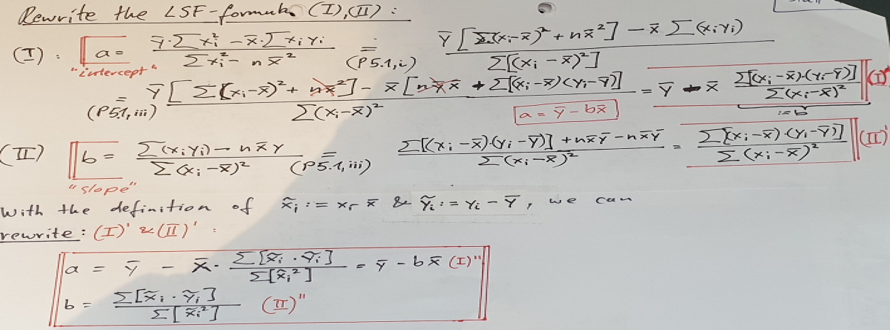 Rewrite the LSF-formula (I),(II) :
(I) : a = (ȳ·∑xi² − x̄·∑xiyi) / (∑xi² − nx̄²) = (P5.1,i) (ȳ[∑(xi−x̄)² + nx̄²] − x̄∑(xiyi)) / ∑[(xi−x̄)²]
"intercept"
= (P5.1,iii) (ȳ[∑(xi−x̄)² + nx̄²] − x̄[nȳx̄ + ∑[(xi−x̄)(yi−ȳ)]) / ∑(xi−x̄)² = ȳ − x̄ ∑[(xi−x̄)·(yi−ȳ)] / ∑(xi−x̄)² (I)'
a = ȳ − bx̄ =: b
(II) b = (∑(xiyi) − nx̄ȳ) / ∑(xi−x̄)² = (P5.1,iii) (∑[(xi−x̄)·(yi−ȳ)] + nx̄ȳ − nx̄ȳ) / ∑(xi−x̄)² = ∑[(xi−x̄)·(yi−ȳ)] / ∑(xi−x̄)² (II)'
"slope"
With the definition of x̃i := xi− x̄ & ỹi := yi − ȳ, we can
rewrite : (I)' & (II)' :
a = ȳ − x̄· ∑[x̃i · ỹi] / ∑[x̃i²] = ȳ − bx̄ (I)"
b = ∑[x̃i · ỹi] / ∑[x̃i²] (II)"